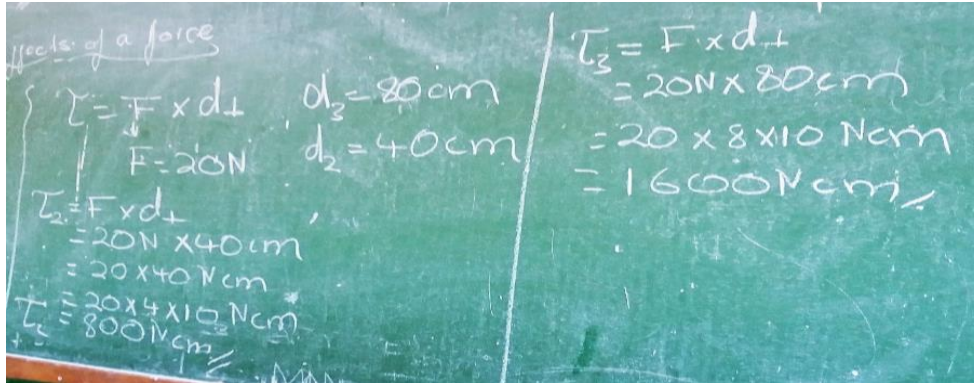 of a force
τ = F × d⊥
F = 20N
d₃ = 80cm
d₂ = 40cm
τ₂ = F × d⊥
= 20N × 40cm
= 20 × 40 Ncm
= 20 × 4 × 10 Ncm
τ₂ = 800Ncm
τ₃ = F × d⊥
= 20N × 80cm
= 20 × 8 × 10 Ncm
= 1600Ncm